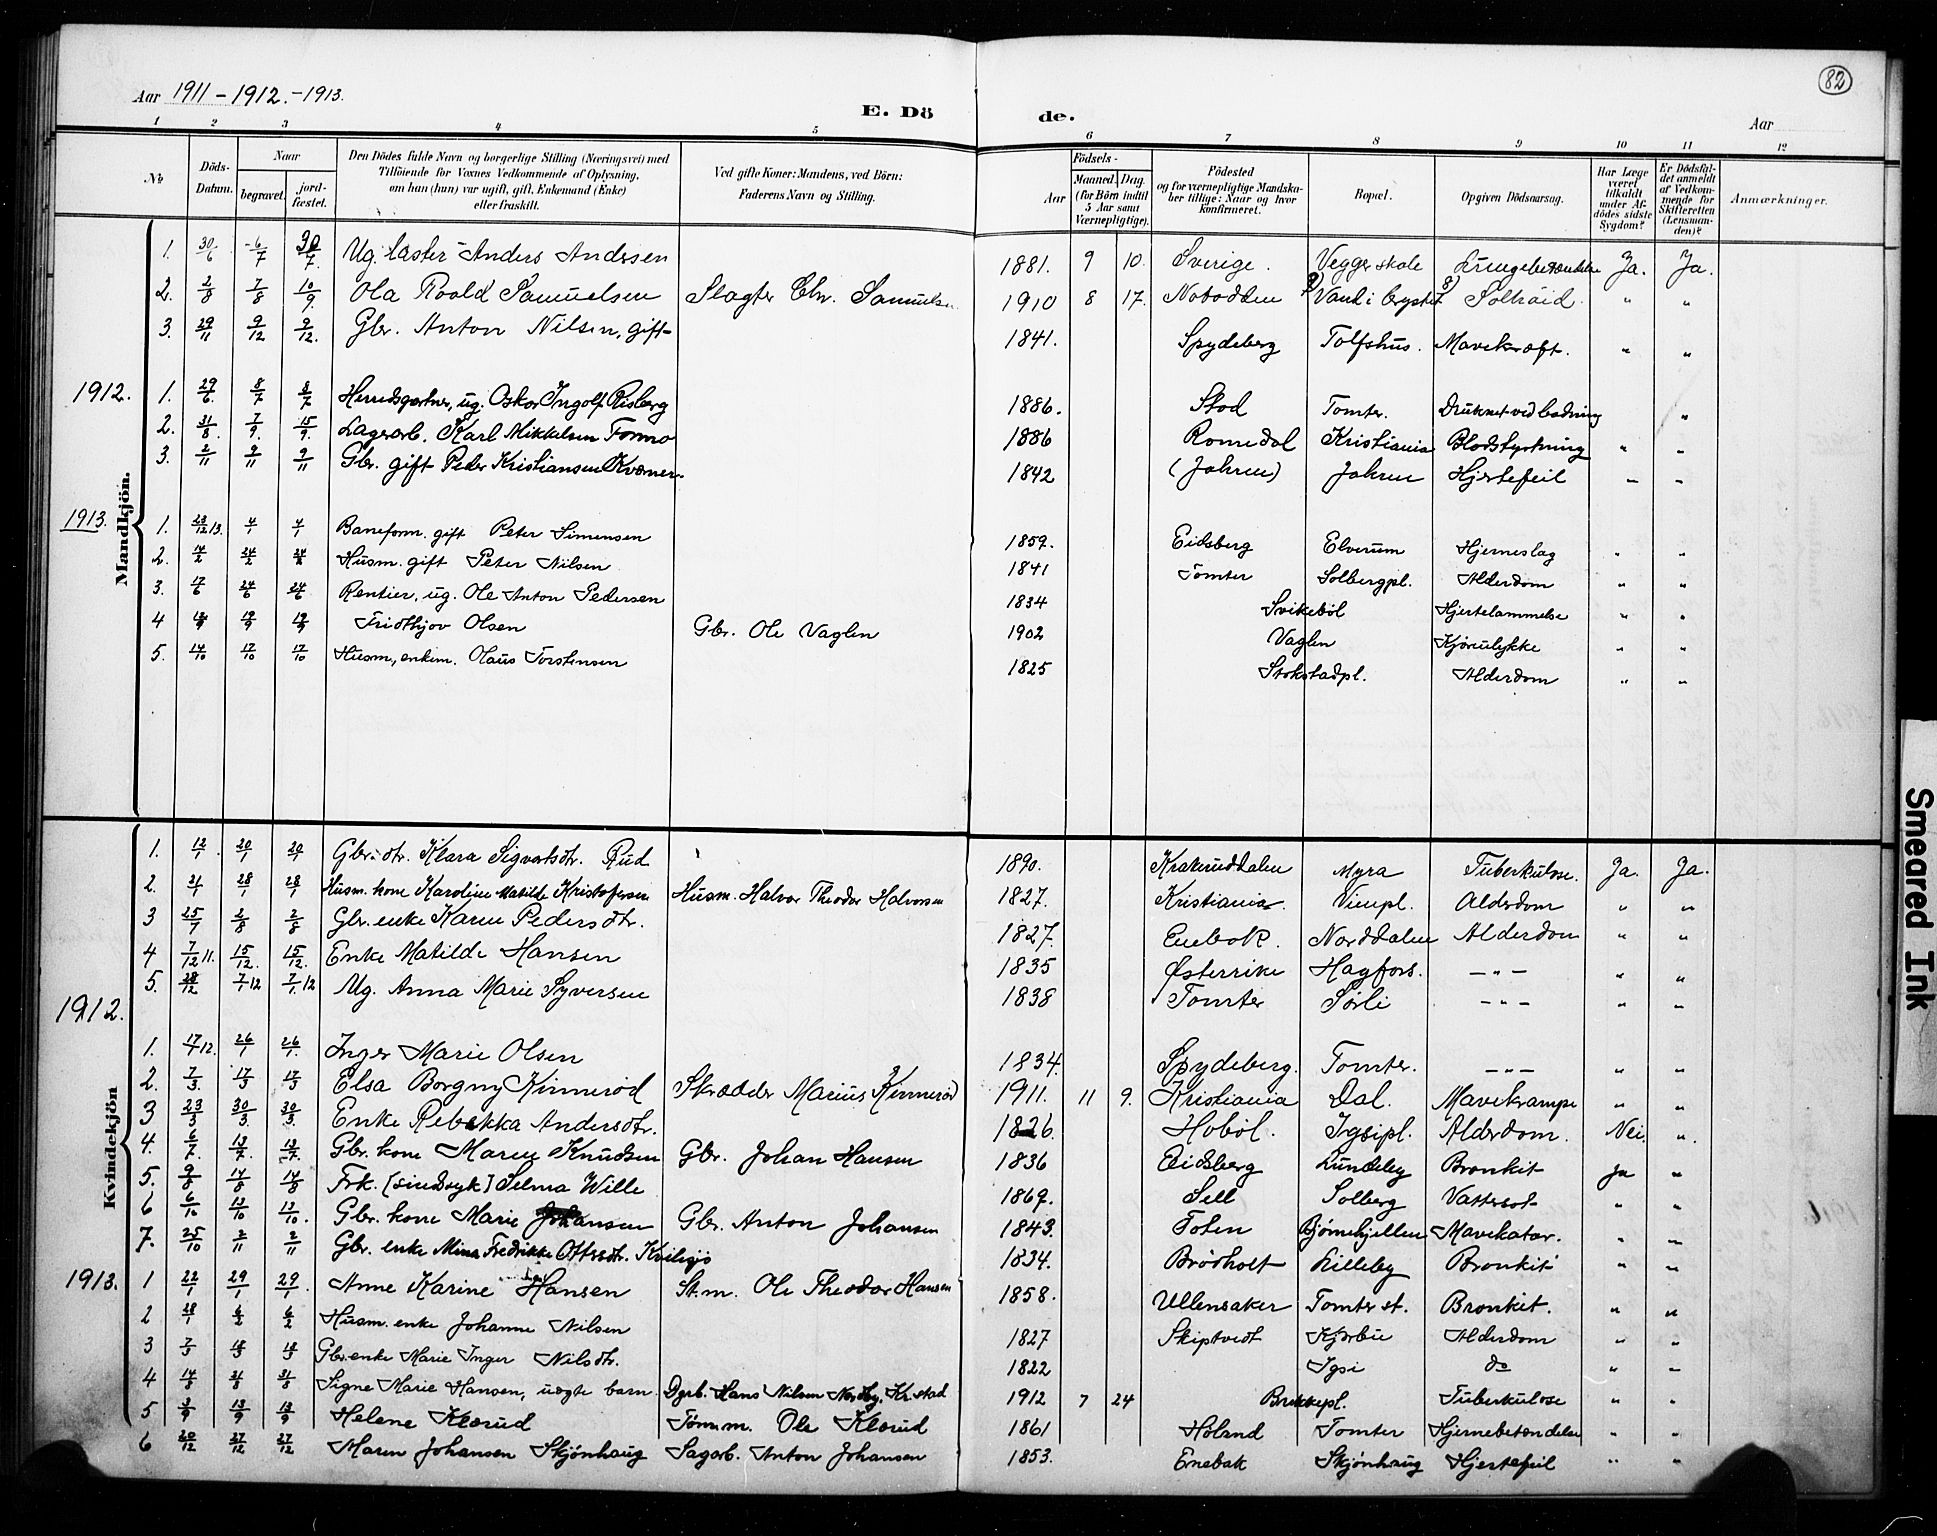 82
Aar 1911 - 1912. - 1913.
E. Dö de.
Aar
1 2 3 4 5 6 7 8 9 10 11 12
No Döds-Datum. Naar begravet. jord-fæstet. Den Dödes fulde Navn og borgerlige Stilling (Næringsvei) med Tilföiende for Voxnes Vedkommende af Oplysning, om han (hun) var ugift, gift, Enkemand (Enke) eller fraskilt. Ved gifte Koner: Mandens, ved Börn: Faderens Navn og Stilling. Födsels- Aar Maaned. Dag. (for Börn indtil 5 Aar samt Værnepligtige). Födested og for værnepligtige Mandskaber tillige: Naar og hvor konfirmeret. Bopæl. Opgiven Dödsaarsag. Har Læge været tilkaldt under Afdödes sidste Sygdom? Er Dödsfaldet anmeldt af Vedkommende for Skifteretten (Lensmanden)? Anmærkninger.
Mandkjön.
1. 30/6 6/7 Ug. taster Anders Andersen 1881. 9 10. Sverige. Vegger skole Lungebetændelse Ja. Ja.
2. 2/8 7/8 10/9. Ola Roald Samuelsen Slagter Chr. Samuelsen 1910 8 17. Notodden Vand i brystet Solhøid " "
3. 29/11 9/12 9/12. Gbr. Anton Nilsen, gift 1841. Spydeberg Tolfshus. Mavekræft. " "
1912. 1. 29/6. 8/7 8/7 Herredsgartner, ug. Oskar Ingolf Risberg 1886. Stod Tomter. Druknet ved badning "
2. 31/8. 7/9. 15/9. Lagerarb. Karl Mikkelsen Formo 1886 Romedal Kristiania Blodstyrtning " "
3. 2/11 9/11 9/11 Gbr. gift Peder Kristiansen Kværner 1842 (Jahren) Jahren Hjertefeil " "
1913. 1. 23/12 13. 4/1 4/1 Baneform. gift Peter Simensen 1859. Eidsberg Elverum Hjerneslag " "
2. 14/2 24/2 24/2 Husm. gift Peter Nilsen 1841 Tomter Solbergpl. Alderdom " "
3. 17/6 24/6 24/6 Rentier, ug. Ole Anton Pedersen 1834 Svikebøl Hjertelammelse " "
4 13/9 19/9 19/9 Fridthjov Olsen Gbr. Ole Vaglen 1902 Vaglen Kjøreulykke " "
5. 14/10 17/10 17/10 Husm., enkem. Olaus Torstensen 1825 Stokstadpl. Alderdom " "
Kvindekjön
1. 12/1 20/1 20/1 Gbr.dtr. Klara Sigvartsdtr. Rud 1890. Krakeruddalen Myra Tuberkulose. Ja. Ja.
2. 21/1 28/1 28/1 Husm. kone Karoline Matilde Kristofersen Husm. Halvor Theodor Halvorsen 1827. Kristiania. Vimpl. Alderdom " "
3 25/7 2/8 2/8 Gbr. enke Karen Pedersdtr. 1827. Enebok. Norddalen Alderdom " "
4 7/12 11. 15/12. 15/12. Enke Matilde Hansen 1835 Østerrike Hagfors. - " - " "
5. 28/12 7/1 12 7/1. 12 Ug. Anna Marie Syversen 1838 Tomter Sørli - " - " "
1912. 1. 17/1 12. 26/1 26/1. Inger Marie Olsen 1834. Spydeberg. Tomter. - " - " "
2. 7/3. 17/3 17/3 Elsa Borgny Kinnerød Skrædder Marius Kinnerød 1911. 11 9. Kristiania Dal. Mavekrampe " "
3 23/3 30/3. 30/3 Enke Rebekka Andersdtr. 1826. Hobøl. Igsipl. Alderdom. Nei. "
4. 6/7. 13/7. 13/7. Gbr. kone Maren Knudsen Gbr. Johan Hansen 1836 Eidsberg Lundeby Bronkit Ja "
5. 9/8 14/8 14/8 Frk. [sindssyk] Selma Wille 1869. Sell Solberg Vattersot " "
6 6/10 13/10 13/10. Gbr. kone Marie Johansen Gbr. Anton Johansen 1843. Toten Bjørnehjellen Mavekatar. " "
7. 25/10 2/11 2/11 Gbr. enke Mina Fredrikke Ottersdtr. Kvilesjø 1834. Brødholt Lilleby Bronkit " "
1913. 1 22/1 29/1 29/1. Anne Karine Hansen St.m. Ole Theodor Hansen 1858. Ullensaker Tomter st. Bronkit. " "
2 28/1 6/2 6/2 Husm. enke Johanne Nilsen 1827 Skiptvedt Kjærbu Alderdom " "
3 7/3 18/3 18/3 Gbr.enke Marie Inger Nilsdtr. 1822 Igsi do " "
4 14/8 21/8 21/8 Signe Marie Hansen, uægte barn. Dgrb. Hans Nilsen Nordby, Kr.stad 1912 7 24 Brekkepl. Tuberkulose " "
5 3/9 13/9 13/9 Helene Klærud Tømm. Ole Klærud 1861 Høland Tomter Hjernebetændelse " "
6 20/12 27/12 27/12 Maren Johansen Skjønhaug Sagarb. Anton Johansen 1853. Enebak Skjønhaug Hjertefeil " "
Smeared Ink